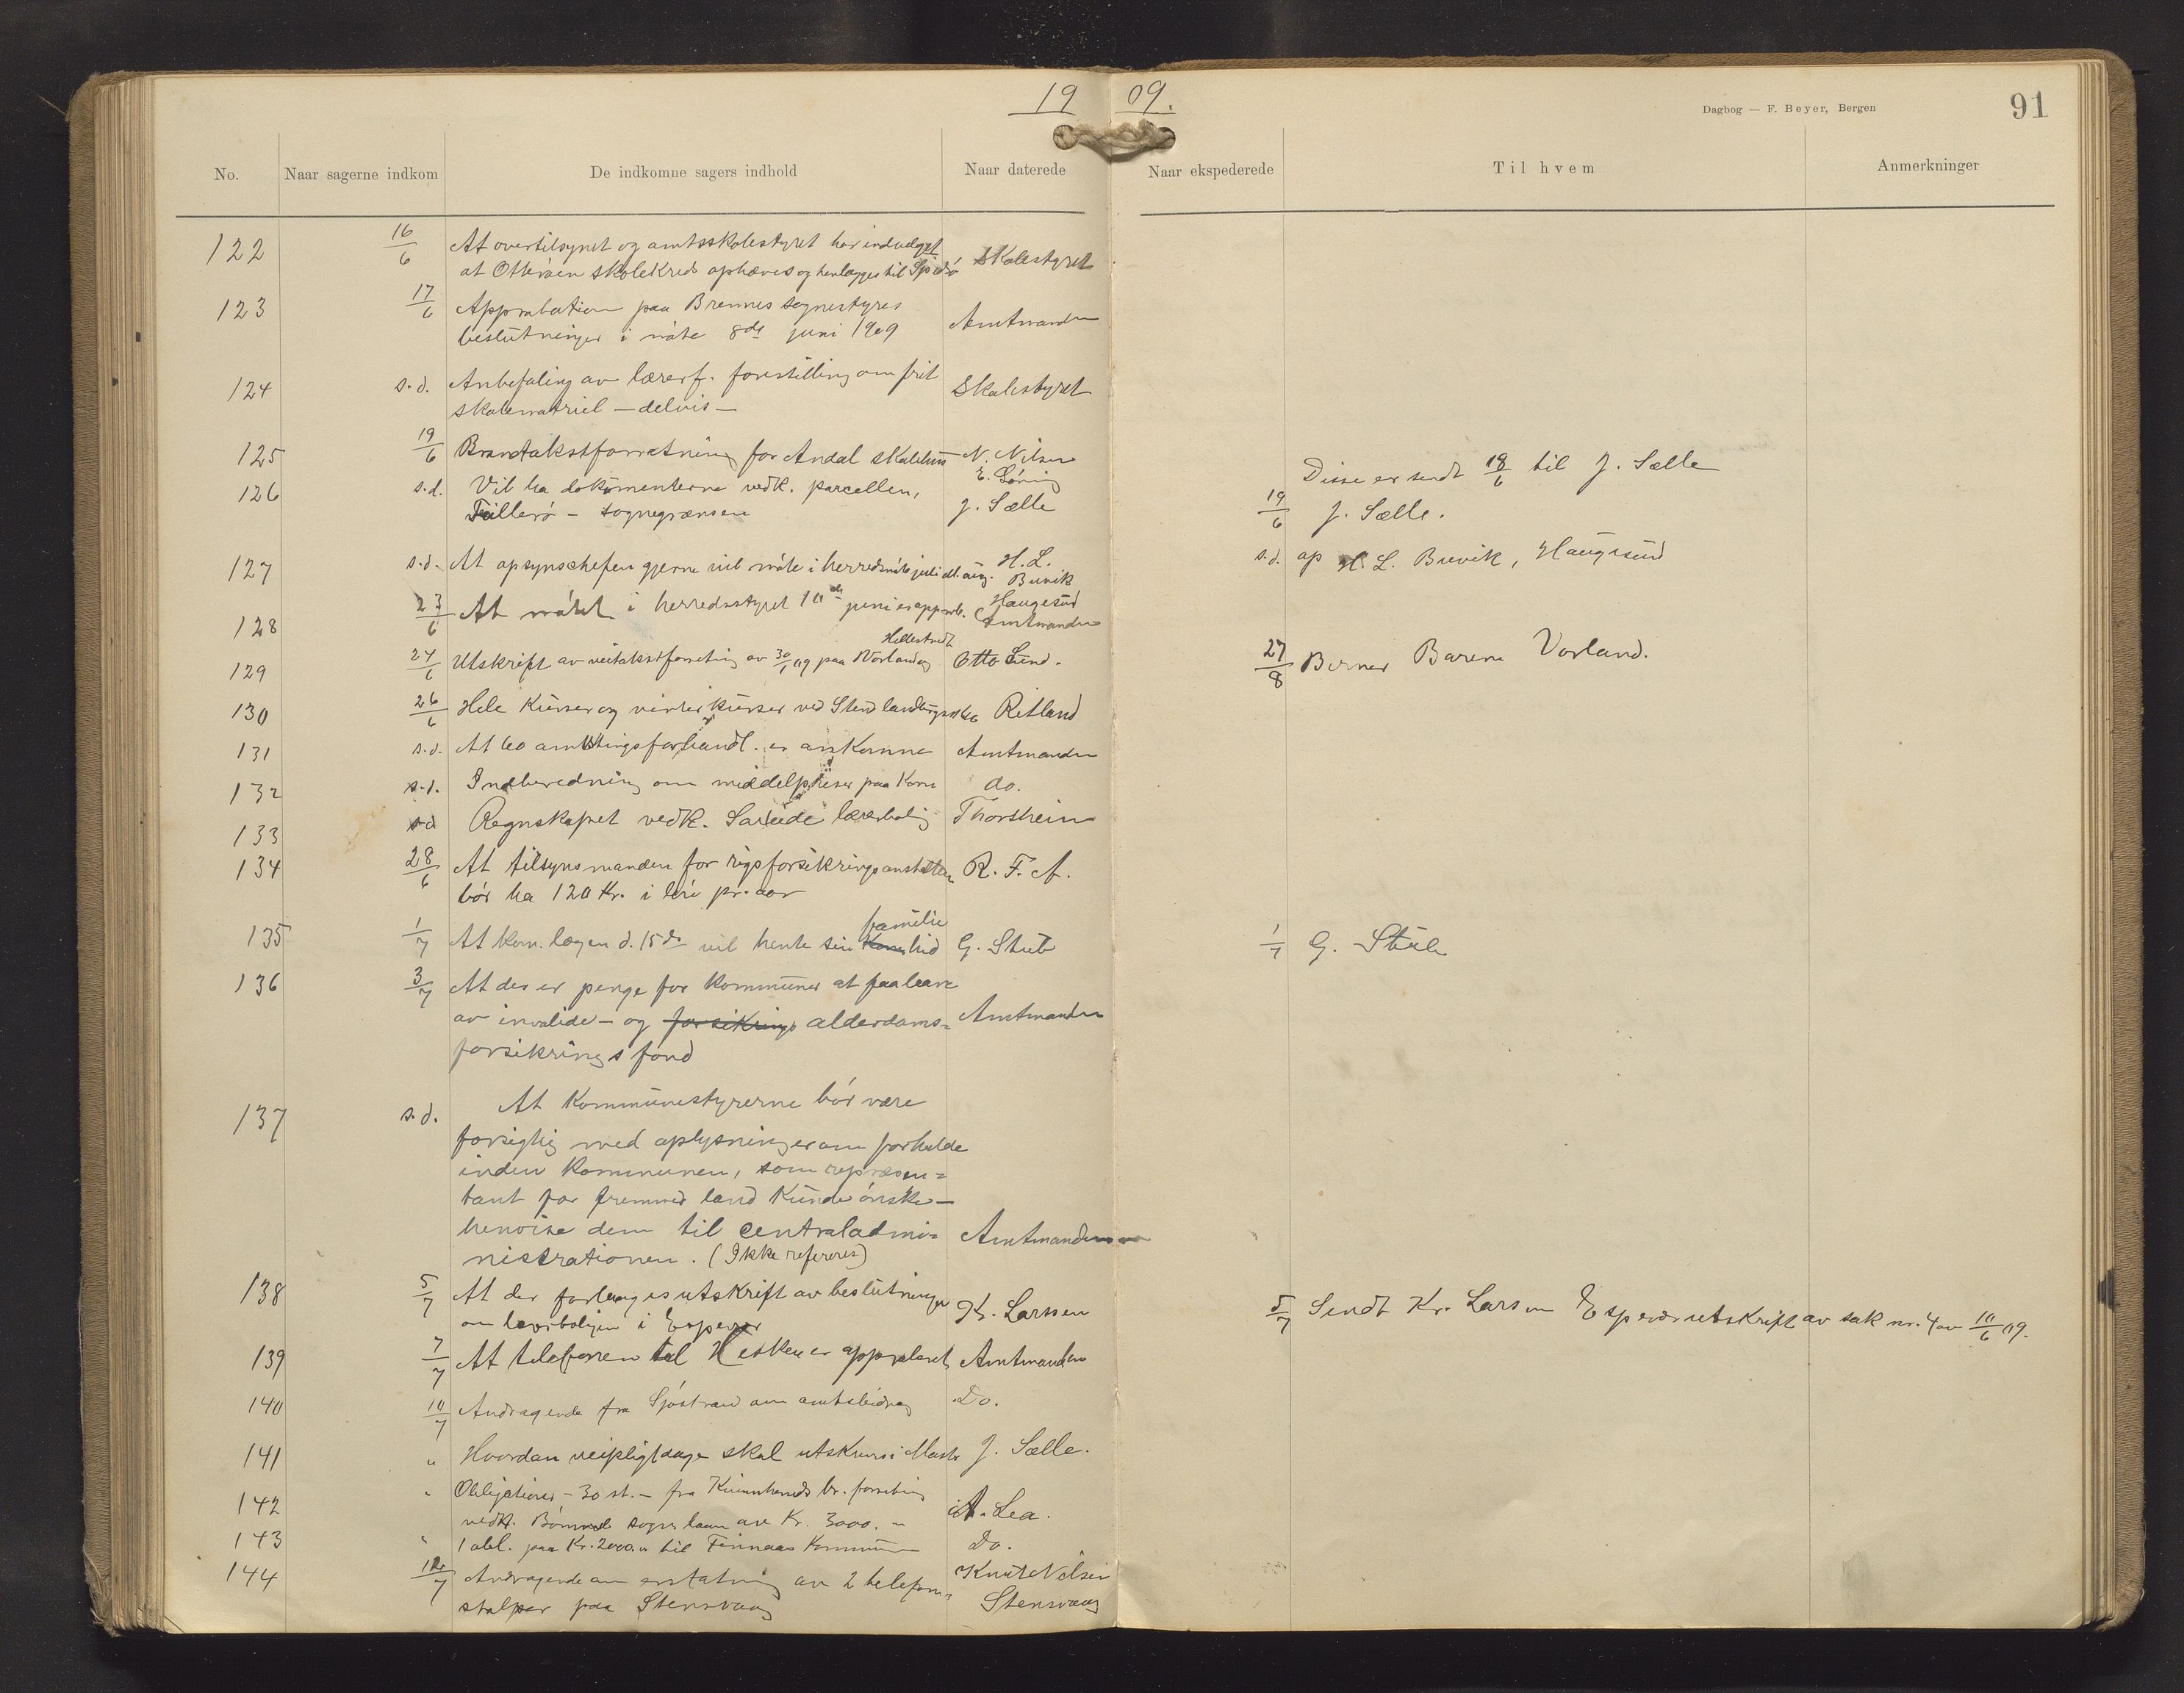 19 09.
Dagbog — F. Beyer, Bergen 91
No. Naar sagerne indkom De indkomne sagers indhold Naar daterede Naar ekspederede Til hvem Anmerkninger
122 16/6 At overtilsynet og amtsskolestyret har indvilget
at Otterøen skolekreds ophæves og henlægges til Spissø Skolestyret
123 17/6 Approbation paa Bremnes sognestyres
beslutninger i møte 8de juni 1909 Amtmanden
124 s.d. Anbefaling av lærerf. forestilling om frit
skolematriel — delvis — Skolestyret
125 19/6 Brandtakstforretning for Andal skolehus N. Nilsen
E. Løning Disse er sendt 19/6 til J. Sælle
126 s.d. Vil ha dokumenterne vedk. parcellen,
— sognegrænsen J. Sælle 19/6 J. Sælle.
127 s.d. At opsynschefen gjerne vil møte i herredsmøte juli el. aug. H. L.
Buvik
Haugesund s.d. op H. L. Buvik, Haugesund
128 23/6 At møtet i herredsstyret 10de juni er approb. Amtmanden
Hellestvedt
129 24/6 Utskrift av veitakstforretning av 30/6 09 paa Vorland og Otto Lund. 27/8 Berner Barene Vorland.
130 26/6 Hele kurser og vinterkurser ved Stend landbrugsskole Ritland
131 s.d. At 60 amtstingsforhandl. er ankomne Amtmanden
132 s.d. Indberedning om middelpriser paa korn do.
133 s.d. Regnskapet vedk. lærerbolig Thorstein
134 28/6 At tilsynsmanden for rigsforsikringsanstalten R. F. A.
bør ha 120 kr. i løn pr. aar
familie
135 1/7 At kom. lægen d. 15de vil hente sin kone hid G. Stub 1/7 G. Stub
136 3/7 At der er penge for kommuner at faa laane
av invalide- og forsikrings alderdoms= Amtmanden
forsikringsfond
137 s.d. At kommunestyrerne bør være
forsigtig med oplysninger om forholde
inden kommunen, som repræsen=
tant for fremmed land kunde ønske —
henvise dem til centraladmi= Amtmanden
nistrationen. (Ikke refereres)
138 5/7 At der forlanges utskrift av beslutninger
om lærerboligen i Espevær K. Larssen 5/7 Sendt Kr. Larsen Espevær utskrift av sak nr. 4 av 10/6 09.
139 7/7 At telefonen til Hisken er approberet Amtmanden
140 10/7 Andragende fra Sjøstrand om amtsbidrag Do.
141 " Hvordan veipligtdage skal utskrives i Moster J. Sælle.
142 " Obligationer — 30 st. — fra Kvinnherreds br. forretning
vedk. Bømmel sogns laan av Kr. 3000. — A. Lea.
143 " 1 obl. paa Kr. 2000.00 til Finnaas kommune Do.
144 12/7 Andragende om erstatning av 2 telefon= Knut Nilsen
stolper paa Stensvaag Stensvaag